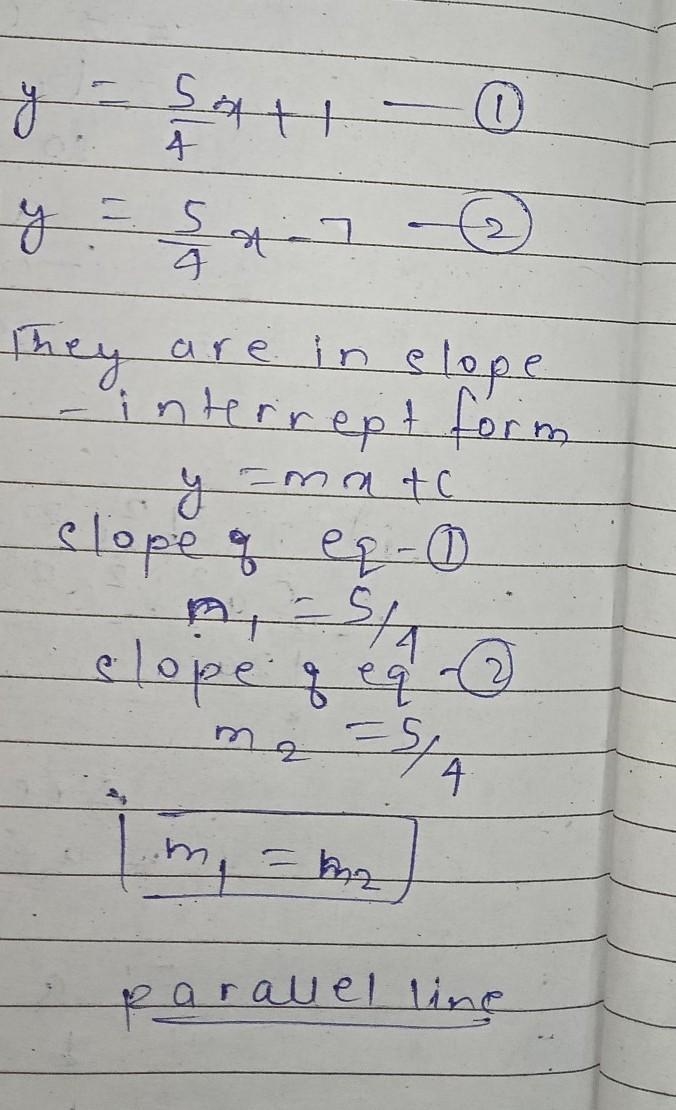 y = 5/4 x + 1 — ①
y = 5/4 x - 7 — ②
They are in slope
- interrept form
y = mx + c
slope of eq - ①
m₁ = 5/4
slope of eq - ②
m₂ = 5/4
m₁ = m₂
parallel line